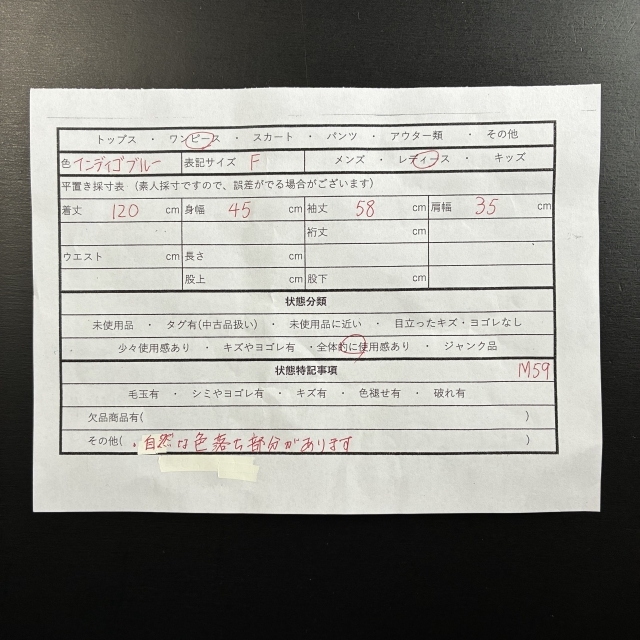 トップス ・ ワンピース ・ スカート ・ パンツ ・ アウター類 ・ その他
色 インディゴブルー 表記サイズ F メンズ ・ レディース ・ キッズ
平置き採寸表 （素人採寸ですので、誤差がでる場合がございます）
着丈 120 cm 身幅 45 cm 袖丈 58 cm 肩幅 35 cm
裄丈
ウエスト cm 長さ cm
股上 cm 股下 cm
状態分類
未使用品 ・ タグ有(中古品扱い) ・ 未使用品に近い ・ 目立ったキズ・ヨゴレなし
少々使用感あり ・ キズやヨゴレ有 ・全体的に使用感あり ・ ジャンク品
状態特記事項 M59
毛玉有 ・ シミやヨゴレ有 ・ キズ有 ・ 色褪せ有 ・ 破れ有
欠品商品有( )
その他( ・自然な色落ち部分があります )